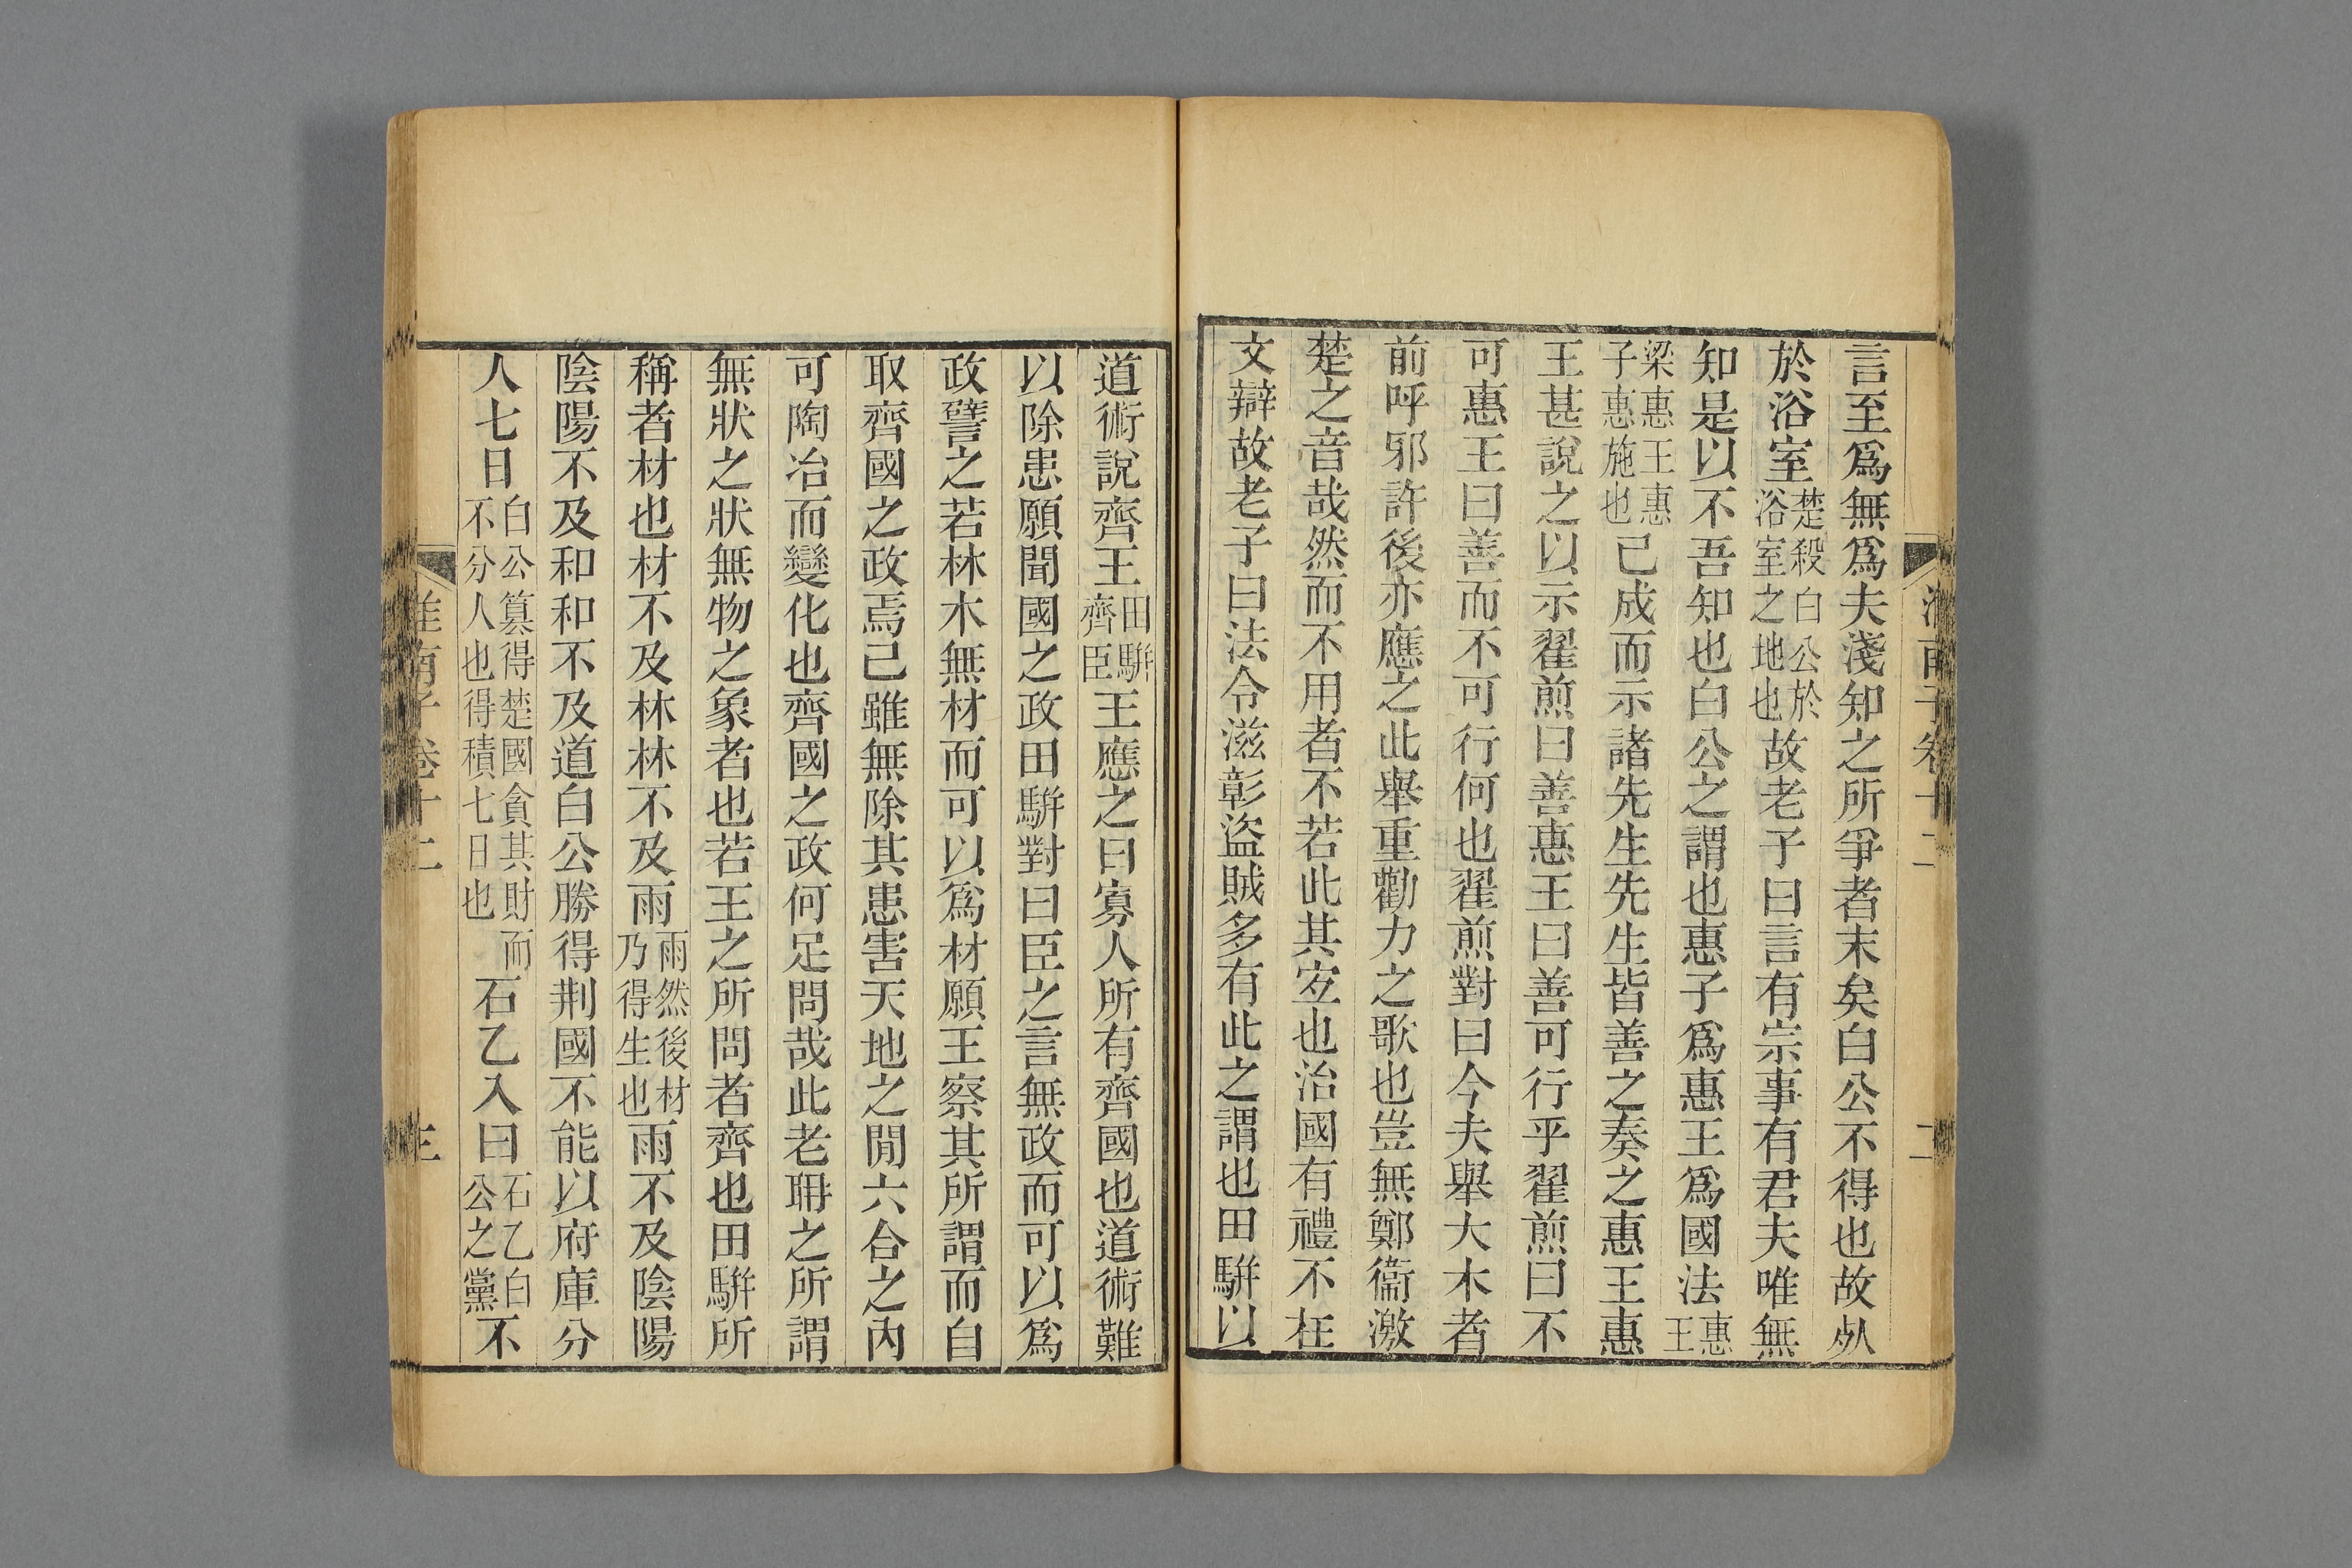 言至爲無爲夫淺知之所爭者末矣白公不得也故𣦸
於浴室楚殺白公於浴室之地也故老子曰言有宗事有君夫唯無
知是以不吾知也白公之謂也惠子爲惠王爲國法惠王
梁惠王惠子惠施也已成而示諸先生先生皆善之奏之惠王惠
王甚說之以示翟煎曰善惠王曰善可行乎翟煎曰不
可惠王曰善而不可行何也翟煎對曰今夫舉大木者
前呼邪許後亦應之此舉重勸力之歌也豈無鄭衞激
楚之音哉然而不用者不若此其宐也治國有禮不在
文辯故老子曰法令滋彰盜賊多有此之謂也田騈以
道術說齊王田騈齊臣王應之曰寡人所有齊國也道術難
以除患願聞國之政田騈對曰臣之言無政而可以爲
政譬之若林木無材而可以爲材願王察其所謂而自
取齊國之政焉己雖無除其患害天地之閒六合之內
可陶冶而變化也齊國之政何足問哉此老耼之所謂
無狀之狀無物之象者也若王之所問者齊也田騈所
稱者材也材不及林林不及雨雨然後材乃得生也雨不及陰陽
陰陽不及和和不及道白公勝得荆國不能以府庫分
人七日白公篡得楚國貪其財而不分人也得積七日也石乙入曰石乙白公之黨不
淮南子卷十二